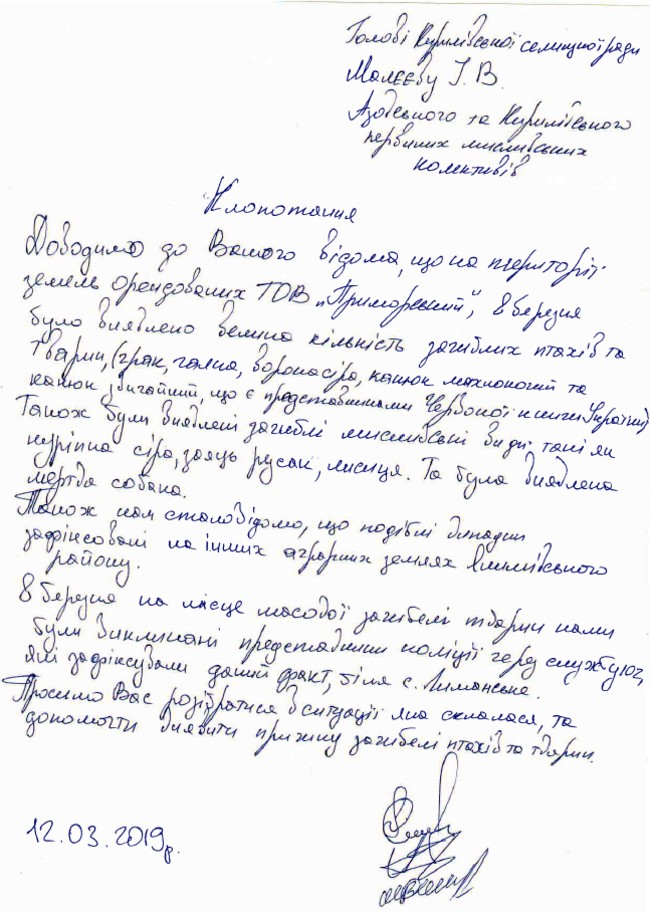 Голові Кирилівської селищної ради
Малєєву І. В.
Азовського та Кирилівського
первиних мисливських
колективів
Клопотання
Доводимо до Вашого відома, що на території
земель орендованих ТОВ "Приморський", 8 березня
було виявлено велика кількість загиблих птахів та
тварин, (грак, галка, ворона сіра, канюк мохноногий та
канюк звичайний, що є представниками Червоної книги України)
Також були виявлені загиблі мисливські види такі як
куріпка сіра, заяць русак, лисиця. Та була виявлена
мертва собака.
Також нам стало відомо, що подібні випадки
зафіксовані на інших аграрних землях Якимівського
району.
8 березня на місце масової загибелі тварин нами
були викликані представники поліції через службу 102,
які зафіксували даний факт, біля с. Лиманське.
Просимо Вас розібратися в ситуації яка склалася, та
допомогти виявити причину загибелі птахів та тварин.
12.03.2019р.